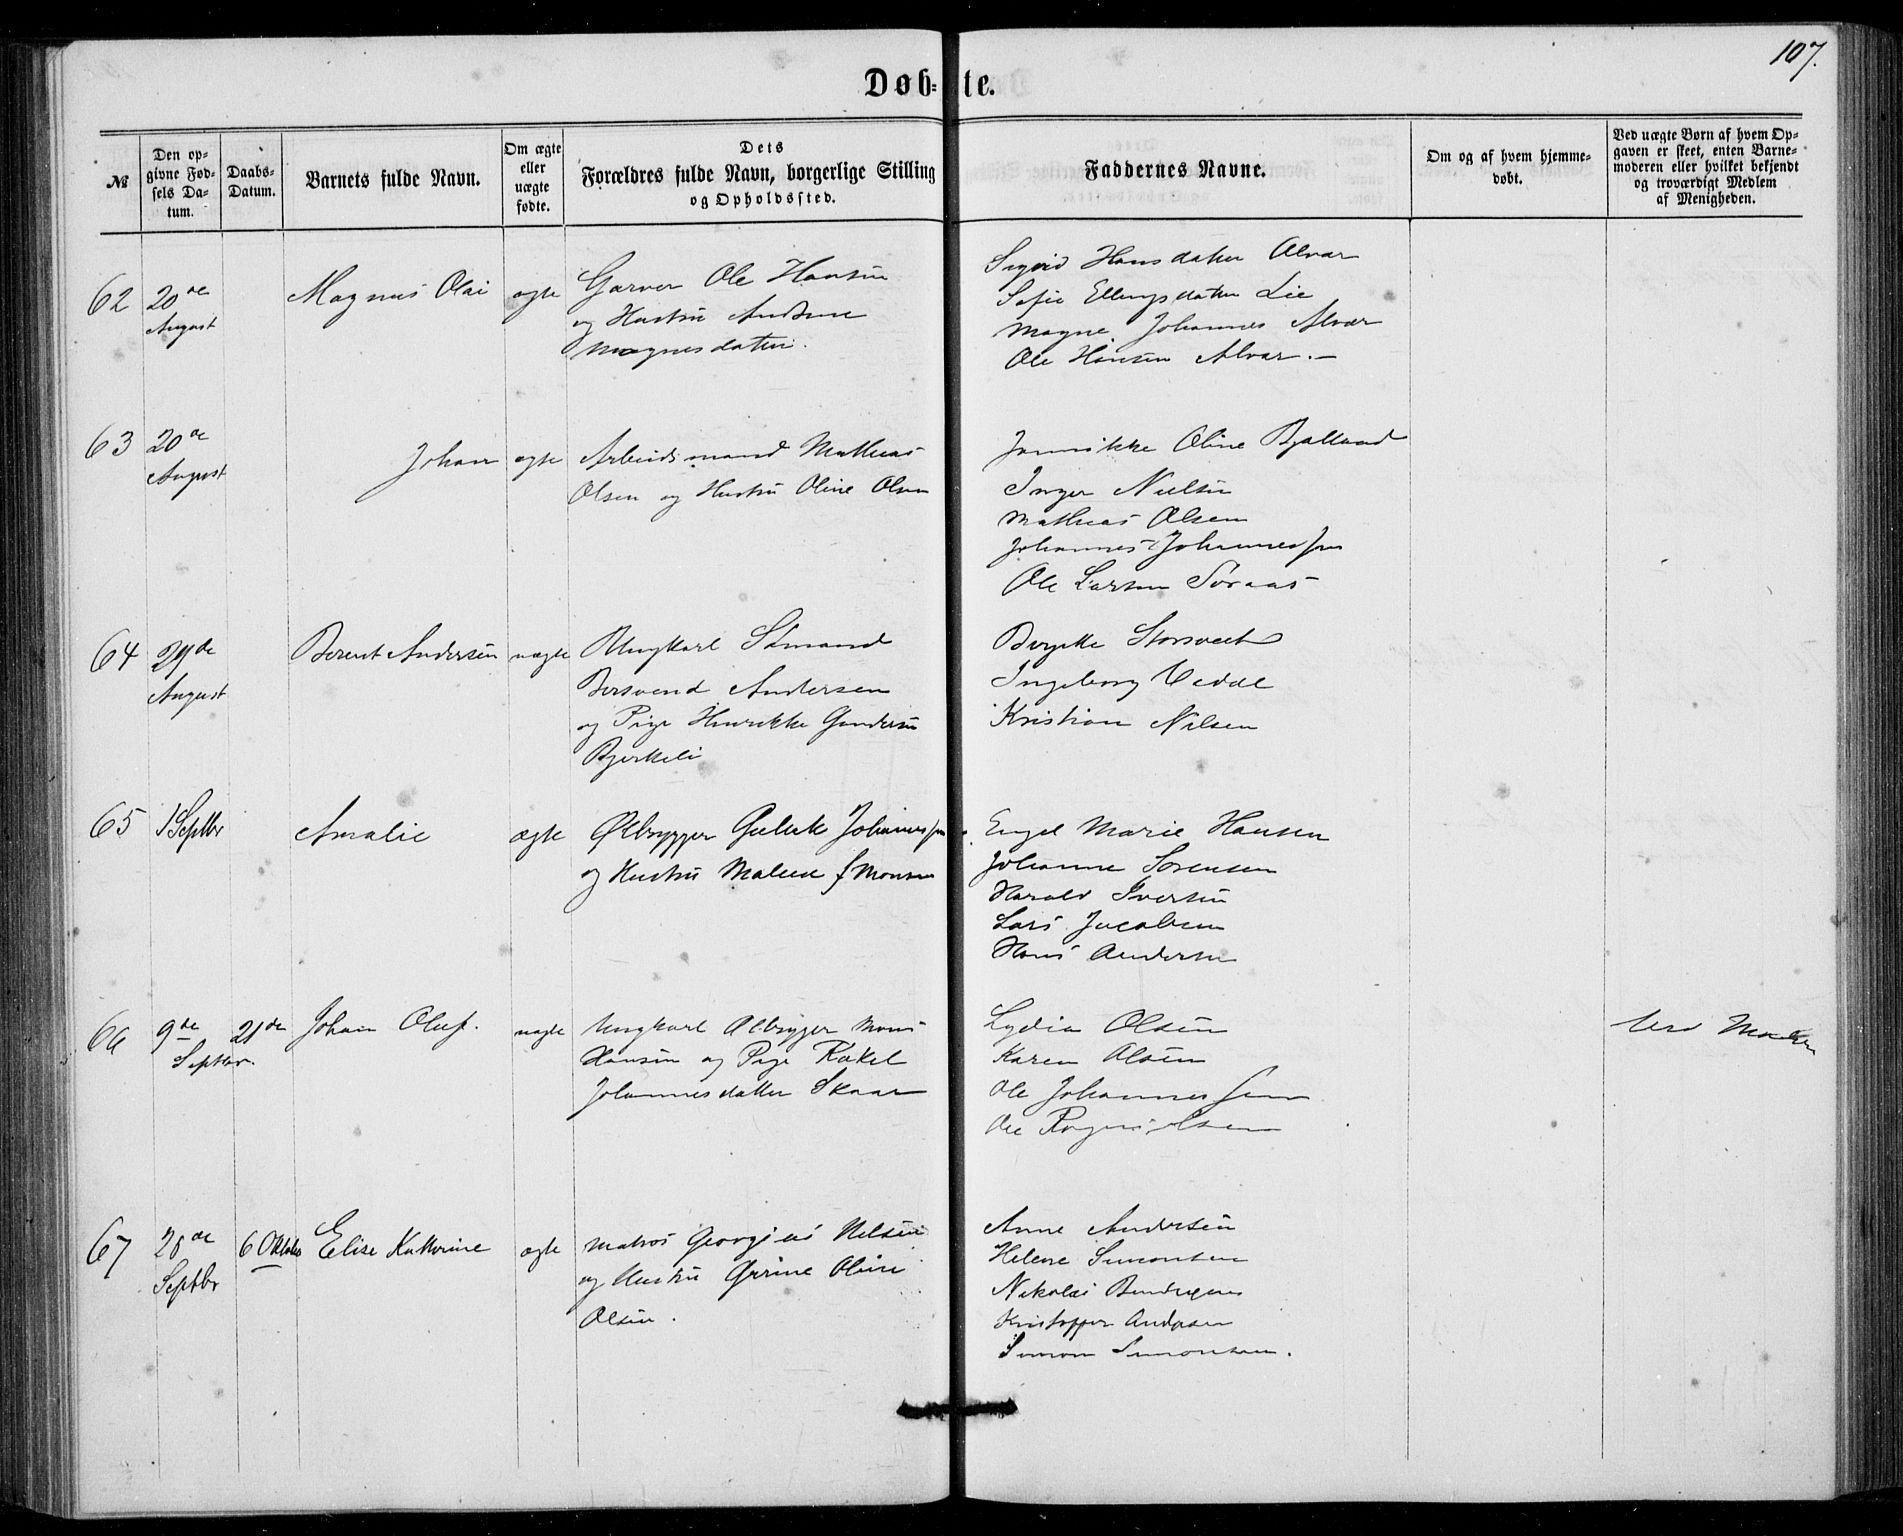 107.
Døb-te.
№
Den op-
givne Fød-
sels Da-
tum.
Daabs-
Datum.
Barnets fulde Navn.
Om ægte
eller
uægte
fødte.
Dets
Forældres fulde Navn, borgerlige Stilling
og Opholdssted.
Faddernes Navne.
Om og af hvem hjemme-
døbt.
Ved uægte Børn af hvem Op-
gaven er skeet, enten Barne-
moderen eller hvilket bekjendt
og troværdigt Medlem
af Menigheden.
62
20de
August
Magnus Olai
ægte
Garver Ole Hansen
og Hustru
Magnesdatter.
Sigrid Hansdatter Alvær
Sofie Ellingsdatter Lie
Magne Johannes Alvær
Ole Hansen Alvær.
63
20de
August
Johan
ægte
Arbeidsmand Mathias
Olsen og Hustru Oline Olsen
Jannikke Oline Bjelland
Inger Nielsen
Mathias Olsen
Johannes Johannessen
Ole Larsen
64
29de
August
Berent Andersen
uægte
Ungkarl Sømand
Bersvend Andersen
og Pige Henrikke Gundersen
Bjerkeli
Birgitte
Ingeborg Vedal
Kristian Nilsen
65
1 Septbr
Amalie
ægte
Ølbrygger Gulek Johannessen
og Hustru Malene f Monsen
Engel Marie Hansen
Johanne Sørensen
Harald Iversen
Lars Jacobsen
Hans Andersen
66
9de
Septbr.
21de
Johan Oluf.
uægte
Ungkarl Ølbrygger Mons
Hansen og Pige Rakel
Johannesdatter Skaar
Lydia Olsen
Karen Olsen
Ole Johannessen
Ole
Ved Moderen
67
28de
Septbr
6 Oktober
Elise Kathrine
ægte
Matros Georgius Nilsen
og Hustru Grine Oline
Olsen.
Anne Andersen
Helene Simonsen
Nikolai
Kristoffer Andersen
Simon Simonsen.